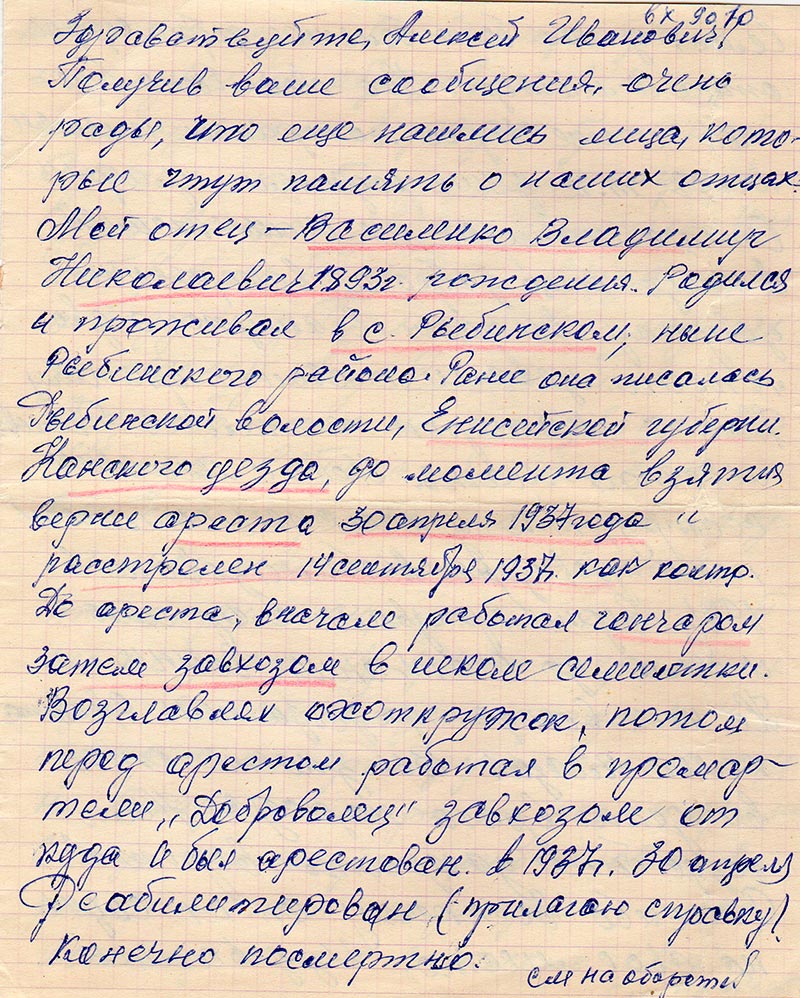 вх 90 70
Здгаваствуйте, Алексей Иванович!
Получив ваше сообщения, очень
рады, что еще нашлись лица, кото-
рые чтут память о наших отцах.
Мой отец – Василенко Владимир
Николаевич 1893г. рождения. Родился
и проживал в с. Рыбинском, ныне
Рыбинского района. Ране она писалась
Рыбинской волости, Енисейской губерни.
Канского уезда, до момента взятия
верне ареста 30 апреля 1937 года и
расстрелен 14 сентября 1937. как контр.
До ареста, вначале работал гончаром
затем завхозом в школе семилетки.
Возглавлял охоткружок, потом
перед арестом работал в промар-
тели „Доброволец" завхозом от
куда и был арестован. в 1937г. 30 апреля
Реабилитирован (прилагаю справку)
Конечно посмертно.
см на обороте